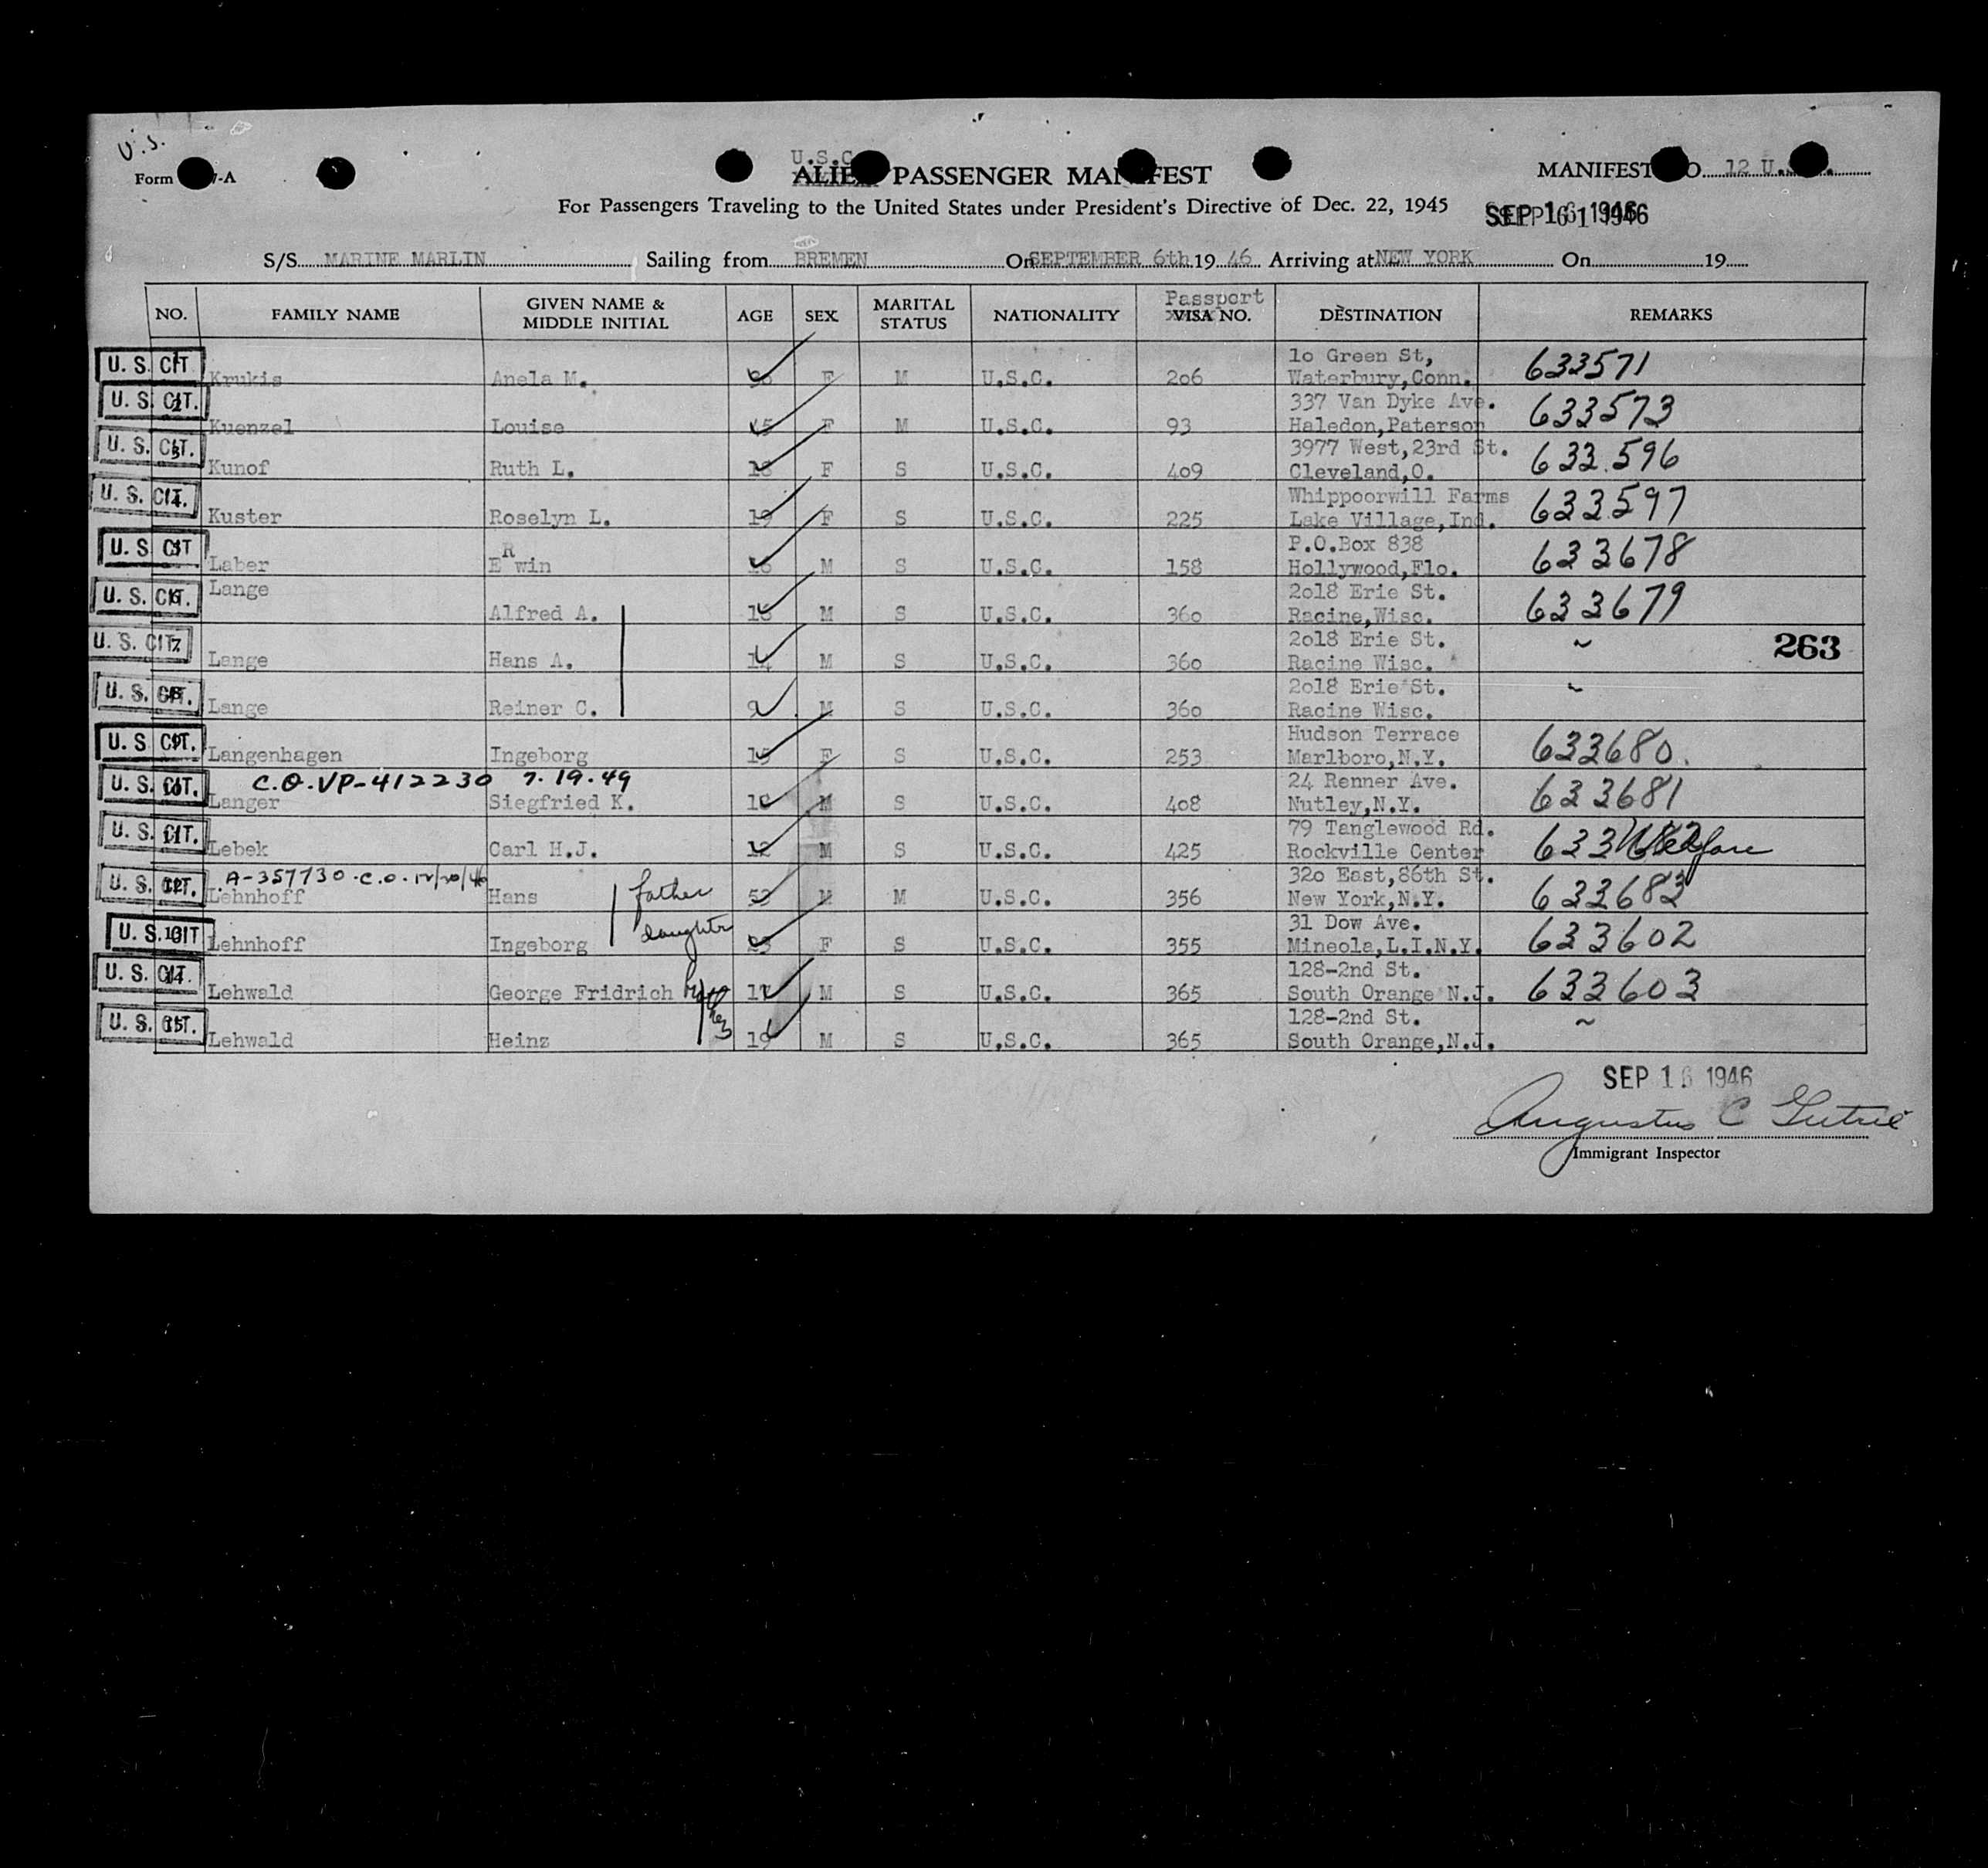 U.S.
U.S.C.
Form -A
ALIEN PASSENGER MANIFEST
MANIFEST NO. 12 U.
For Passengers Traveling to the United States under President's Directive of Dec. 22, 1945
SEP 16 1946
S/S MARINE MARLIN Sailing from BREMEN On SEPTEMBER 6th 19 46 Arriving at NEW YORK On 19
NO. FAMILY NAME GIVEN NAME & MIDDLE INITIAL AGE SEX MARITAL STATUS NATIONALITY Passport VISA NO. DESTINATION REMARKS
U. S. CIT. 1 Krukis Anela M. F M U.S.C. 206 10 Green St, Waterbury,Conn. 633571
U. S. CIT. 2 Kuenzel Louise F M U.S.C. 93 337 Van Dyke Ave. Haledon,Paterson 633573
U. S. CIT. 3 Kunof Ruth L. 18 F S U.S.C. 409 3977 West,23rd St. Cleveland,O. 633596
U. S. CIT. 4 Kuster Roselyn L. 19 F S U.S.C. 225 Whippoorwill Farms Lake Village,Ind. 633597
U. S. CIT 5 Laber ERwin M S U.S.C. 158 P.O.Box 838 Hollywood,Flo. 633678
U. S. CIT. 6 Lange Alfred A. M S U.S.C. 360 2018 Erie St. Racine,Wisc. 633679
U. S. CIT. 7 Lange Hans A. 14 M S U.S.C. 360 2018 Erie St. Racine Wisc. ~ 263
U. S. CIT. 8 Lange Reiner C. 9 M S U.S.C. 360 2018 Erie St. Racine Wisc. ~
U. S. CIT. 9 Langenhagen Ingeborg F S U.S.C. 253 Hudson Terrace Marlboro,N.Y. 633680.
C.O. VP-412230 7.19.49
U. S. CIT. 10 Langer Siegfried K. M S U.S.C. 408 24 Renner Ave. Nutley,N.Y. 633681
U. S. CIT. 11 Lebek Carl H.J. 12 M S U.S.C. 425 79 Tanglewood Rd. Rockville Center 633682
A-357730.C.O.12/20/46
U. S. CIT. 12 Lehnhoff Hans father 53 M M U.S.C. 356 320 East,86th St. New York,N.Y. 633683
U. S. CIT 13 Lehnhoff Ingeborg daughter F S U.S.C. 355 31 Dow Ave. Mineola,L.I.N.Y. 633602
U. S. CIT. 14 Lehwald George Fridrich brothers 17 M S U.S.C. 365 128-2nd St. South Orange N.J. 633603
U. S. CIT. 15 Lehwald Heinz 19 M S U.S.C. 365 128-2nd St. South Orange,N.J. ~
SEP 16 1946
Augustus C
Immigrant Inspector